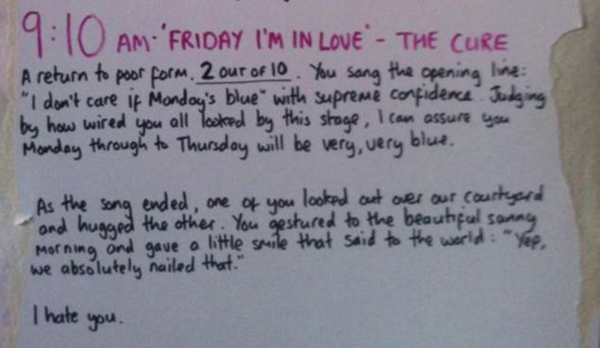 9:10 AM - 'FRIDAY I'M IN LOVE' - THE CURE
A return to poor form. 2 out of 10. You sang the opening line:
"I don't care if Monday's blue" with supreme confidence. Judging
by how wired you all looked by this stage, I can assure you
Monday through to Thursday will be very, very blue.
As the song ended, one of you looked out over our courtyard
and hugged the other. You gestured to the beautiful sunny
morning and gave a little smile that said to the world: "Yep,
we absolutely nailed that."
I hate you.